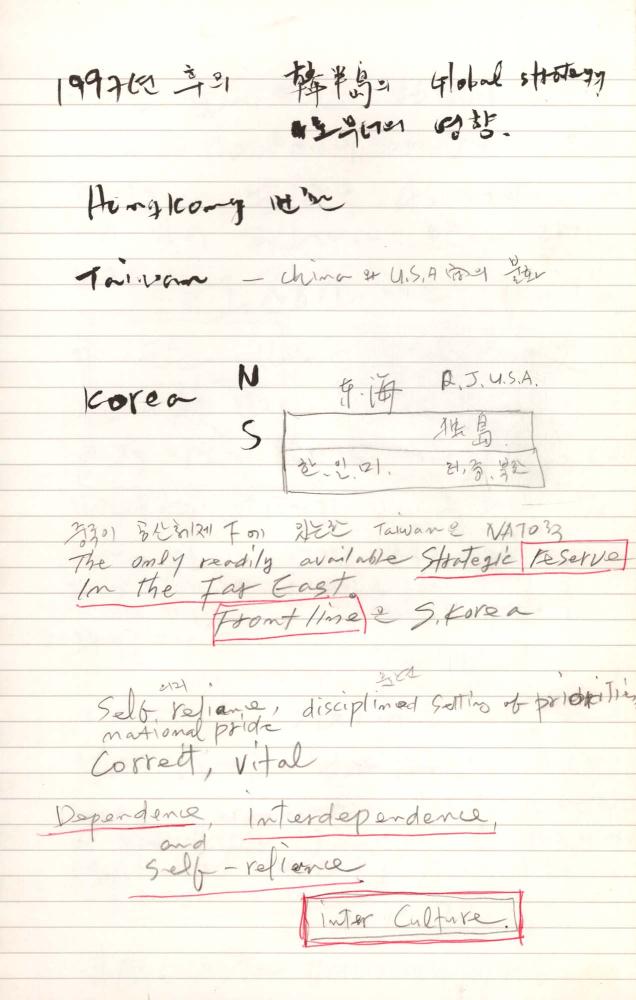 1997년 후의 韓半島의 Global strategy
로부터의 영향.
Hongkong 반환
Taiwan — China 와 U.S.A 間의 불화
Korea N S
东.海 R.J.U.S.A.
独島.
한.일.미. 러.중.북한
중국이 공산체제 下에 있는한 Taiwan은 NATO の
The only readily available Strategic reserve
In the Far East.
Front line은 S.Korea
Self reliance, disciplined setting of priorities
national pride
Correct, vital
Dependence, Interdependence,
and
self-reliance
inter Culture.